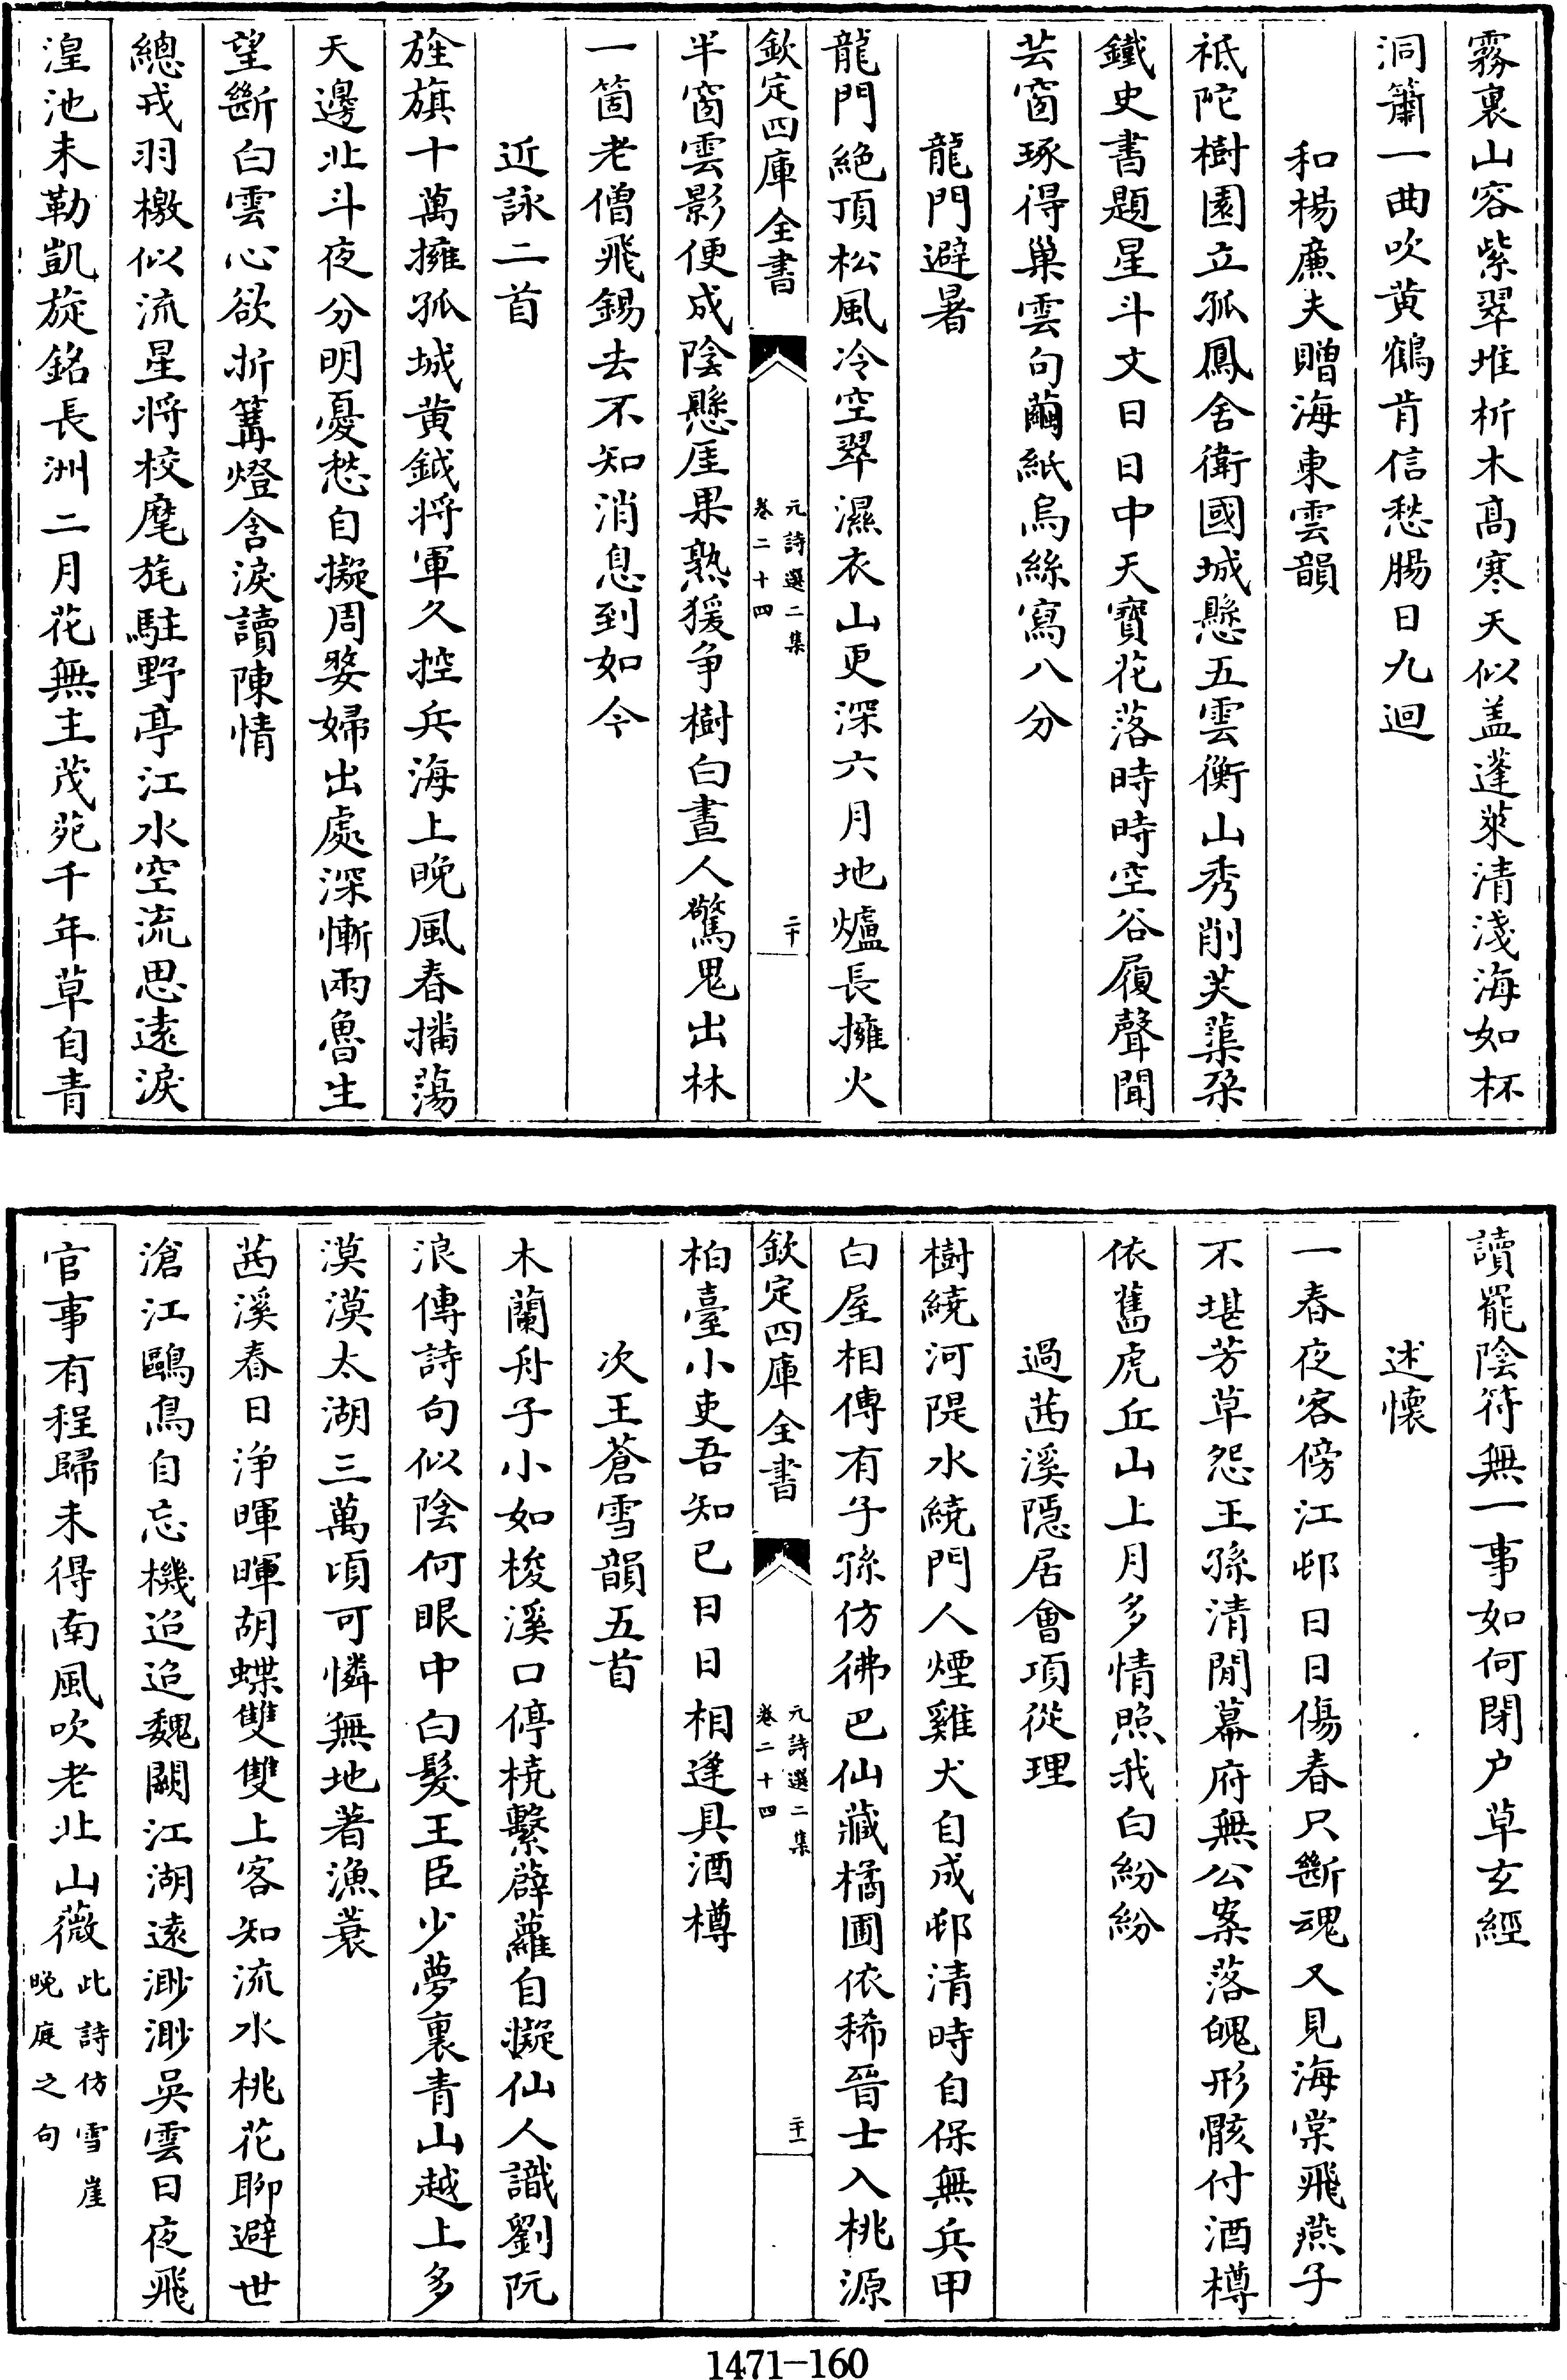 霧裏山容紫翠堆析木髙寒天似盖蓬萊清淺海如杯
洞簫一曲吹黄鶴肯信愁腸日九迴
和楊廉夫贈海東雲韻
祇陀樹園立孤鳳舍衛國城懸五雲衡山秀削芙蕖朶
鐵史書題星斗文日日中天寶花落時時空谷履聲聞
芸窗琢得巢雲句繭紙烏絲寫八分
龍門避暑
龍門絶頂松風冷空翠濕衣山更深六月地爐長擁火
欽定四庫全書
元詩選二集
卷二十四
二十
半窗雲影便成陰懸厓果熟猨争樹白晝人驚鬼出林
一箇老僧飛錫去不知消息到如今
近詠二首
旌旗十萬擁孤城黄鉞将軍久控兵海上晚風春播蕩
天邊北斗夜分明憂愁自擬周嫠婦出處深慚兩魯生
望斷白雲心欲折篝燈含淚讀陳情
總戎羽檄似流星将校麾旄駐野亭江水空流思遠淚
湟池未勒凱旋銘長洲二月花無主茂苑千年草自青
讀罷陰符無一事如何閉户草玄經
述懷
一春夜客傍江邨日日傷春只斷魂又見海棠飛燕子
不堪芳草怨王孫清閒幕府無公案落魄形骸付酒樽
依舊虎丘山上月多情照我白紛紛
過茜溪隠居會項從理
樹繞河隄水繞門人煙雞犬自成邨清時自保無兵甲
白屋相傳有子孫仿彿巴仙藏橘圃依稀晉士入桃源
欽定四庫全書
元詩選二集
卷二十四
二十一
柏臺小吏吾知已日日相逢具酒樽
次王蒼雪韻五首
木蘭舟子小如梭溪口停橈繫薜蘿自擬仙人識劉阮
浪傳詩句似陰何眼中白髮王臣少夢裏青山越上多
漠漠太湖三萬頃可憐無地著漁蓑
茜溪春日浄暉暉胡蝶雙雙上客知流水桃花聊避世
滄江鷗鳥自忘機迢迢魏闕江湖遠渺渺吳雲日夜飛
官事有程歸未得南風吹老北山薇此詩仿雪崖
晚庭之句
1471—160